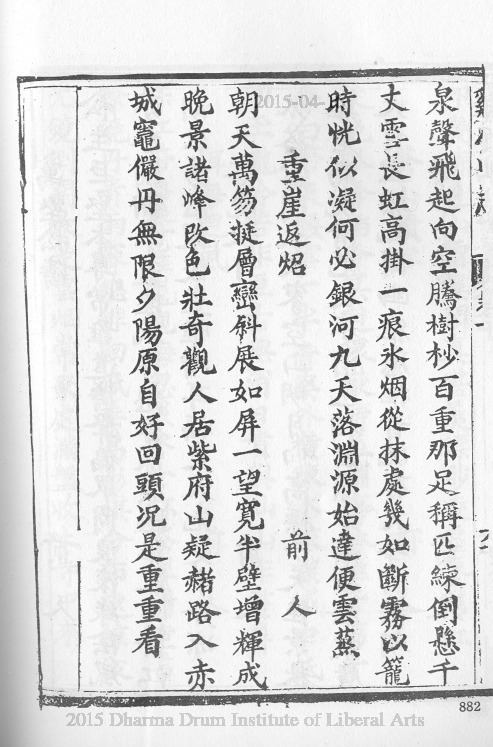 泉聲飛起向空騰樹杪百重那足稱匹練倒懸千
丈雲長虹高掛一痕氷烟從抹處幾如斷霧以籠
時恍似凝何必銀河九天落淵源始達便雲蒸
重崖返炤　前人
朝天萬笏挺層巒斜展如屏一望寬半壁增輝成
晚景諸峰改色壯奇觀人居紫府山疑赭路入赤
城竈儼丹無限夕陽原自好回頭況是重重看
882
2015-04-
2015 Dharma Drum Institute of Liberal Arts